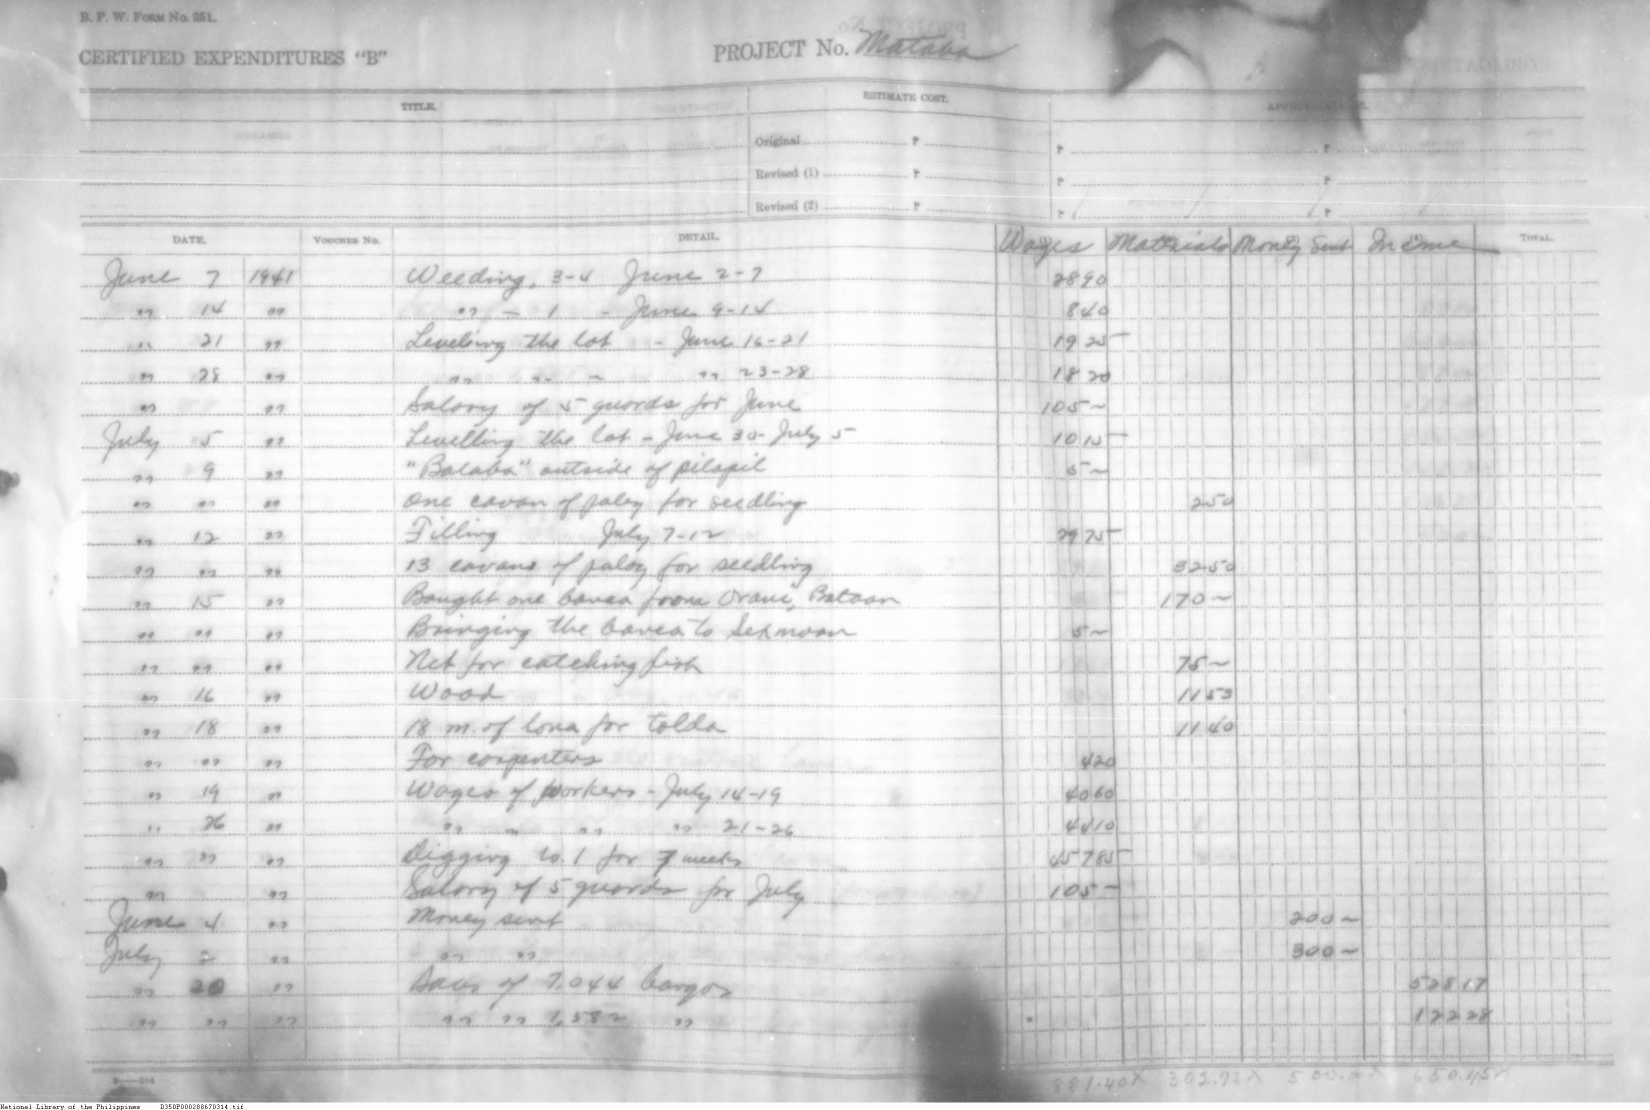 B. P. W. FORM No. 251.
CERTIFIED EXPENDITURES "B"
PROJECT No. Mataba
TITLE.
ESTIMATE COST.
Original ₱ ₱ ₱
Revised (1) ₱ ₱ ₱
Revised (2) ₱ ₱ ₱
DATE. VOUCHER No. DETAIL. Wages Materials Money Sent Income TOTAL.
June 7 1941 Weeding, 3-4 June 2-7 28 90
" 14 " " - 1 - June 9-14 8 40
" 21 " Leveling the lot - June 16-21 19 25
" 28 " " " - " 23-28 18 20
" " Salary of 5 guards for June 105 ~
July 5 " Levelling the lot - June 30- July 5 10 15
" 9 " "Balaba" outside of pilapil 5 ~
" " " One cavan of palay for seedling 2 50
" 12 " Filling July 7-12 29 75
" " " 13 cavans of palay for seedling 32 50
" 15 " Bought one banca from Orani, Bataan 170 ~
" " " Bringing the banca to Sexmoan 5 ~
" " " Net for catching fish 75 ~
" 16 " Wood 11 53
" 18 " 18 m. of lona for tolda 11 40
" " " For carpenters 4 20
" 19 " Wages of workers - July 14-19 40 60
" 26 " " " " " 21-26 44 10
" " " Digging lo. 1 for 7 weeks 457 85
" " Salary of 5 guards for July 105 -
June 4 " Money sent 200 ~
July 2 " " " 300 ~
" 20 " Sales of 7,044 bangos 528 17
" " " " " 1,582 " 122 28
881.40 302.93 500.00 650.45